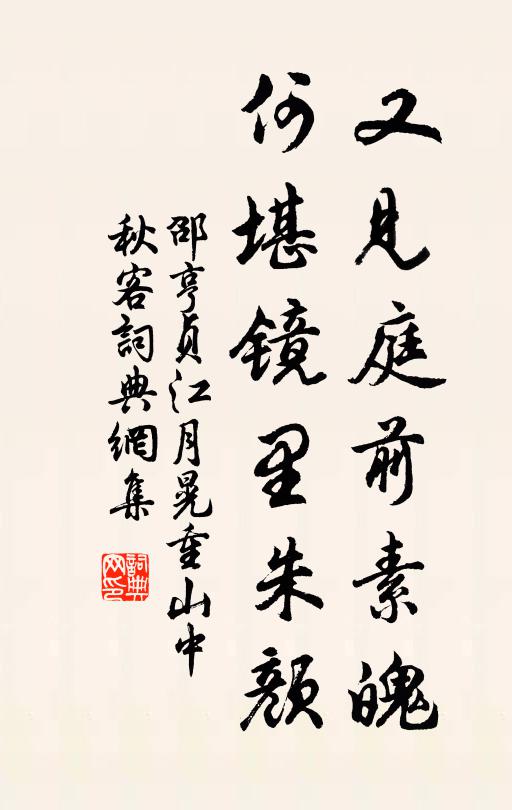 又见庭前素魄
何堪镜里朱颜
邵亨贞江月晃重山中
秋客詞典網集
詞典
网印